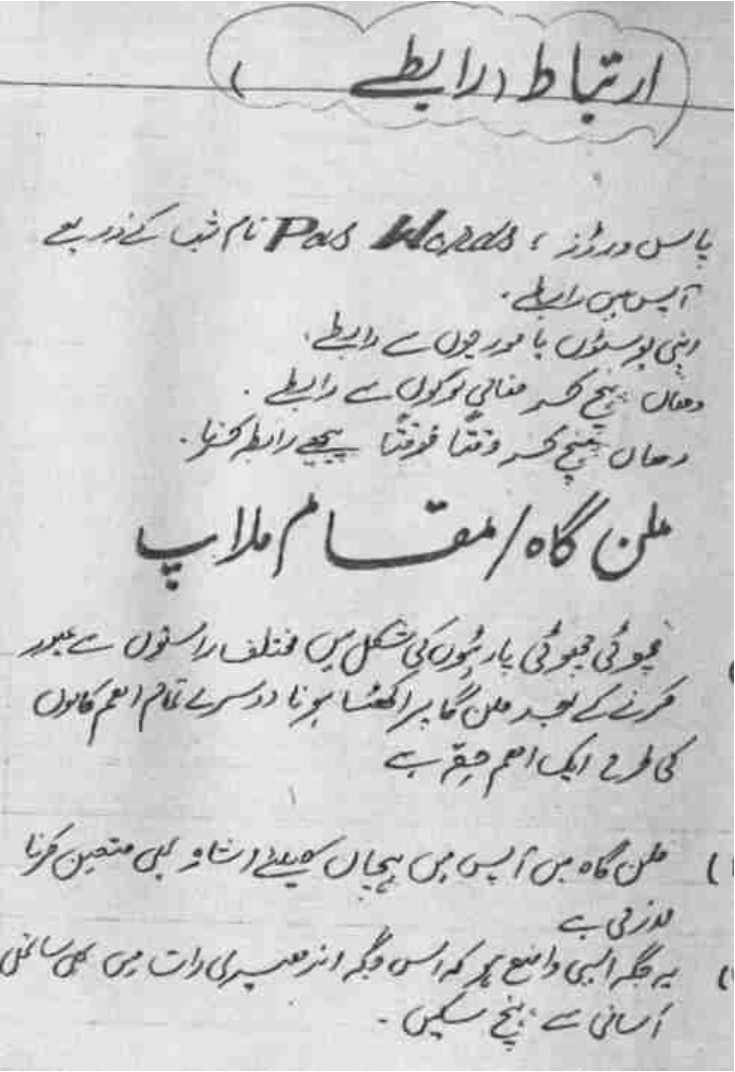 ارتباط (رابطے)
پاس ورڈز، Pas Words نام شب کے ذریعے
آپس میں رابطے.
اپنی پوسٹوں یا مورچوں سے رابطے.
وھاں پہنچ کر مقامی لوگوں سے رابطے.
وھاں پہنچ کر وقتاً فوقتاً پیچھے رابطہ کرنا.
ملن گاہ / مقام ملاپ
چھوٹی چھوٹی پارٹیوں کی شکل میں مختلف راستوں سے عبور
کرنے کے بعد ملن گاہ پر اکھٹا ہونا دوسرے تمام اھم کاموں
کی طرح ایک اھم حصّہ ہے
ملن گاہ میں آپس میں پہچان کیلئے اشارہ بھی متعین کرنا
لازمی ہے
یہ جگہ ایسی واضح ہو کہ اس جگہ اندھیری رات میں بھی ساتھی
آسانی سے پہنچ سکیں.